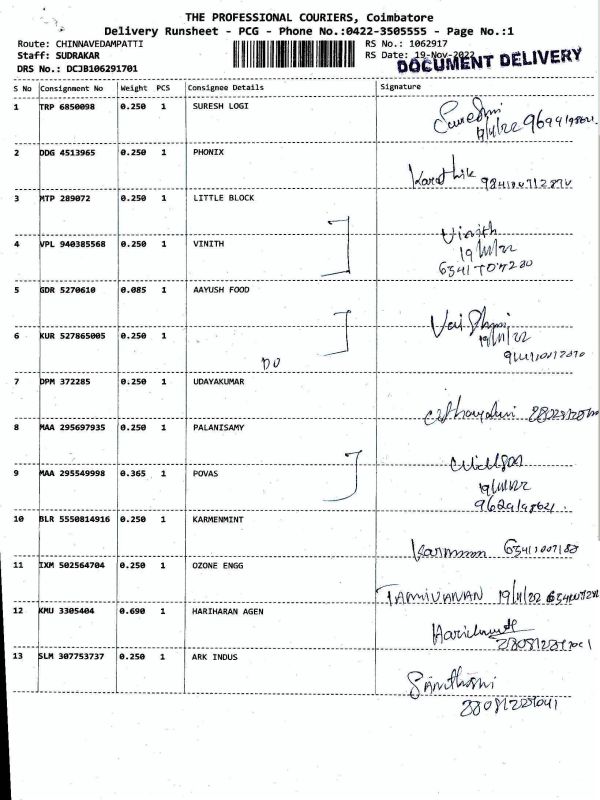 THE PROFESSIONAL COURIERS, Coimbatore
Delivery Runsheet - PCG - Phone No.:0422-3505555 - Page No.:1
Route: CHINNAVEDAMPATTI RS No.: 1062917
Staff: SUDRAKAR RS Date: 19-Nov-2022
DOCUMENT DELIVERY
DRS No.: DCJB106291701
S No Consignment No Weight PCS Consignee Details Signature
1 TRP 6850098 0.250 1 SURESH LOGI
2 DDG 4513965 0.250 1 PHONIX
Karthik
3 MTP 289072 0.250 1 LITTLE BLOCK
4 VPL 940385568 0.250 1 VINITH
Vinith
19/11/22
5 GDR 5270610 0.085 1 AAYUSH FOOD
6 KUR 527865005 0.250 1
19/11/22
DO
7 DPM 372285 0.250 1 UDAYAKUMAR
8 MAA 295697935 0.250 1 PALANISAMY
9 MAA 295549998 0.365 1 POVAS
19/11/22
10 BLR 5550814916 0.250 1 KARMENMINT
11 IXM 502564704 0.250 1 OZONE ENGG
TAMIVANAN 19/11/22
12 KMU 3305404 0.690 1 HARIHARAN AGEN
13 SLM 307753737 0.250 1 ARK INDUS